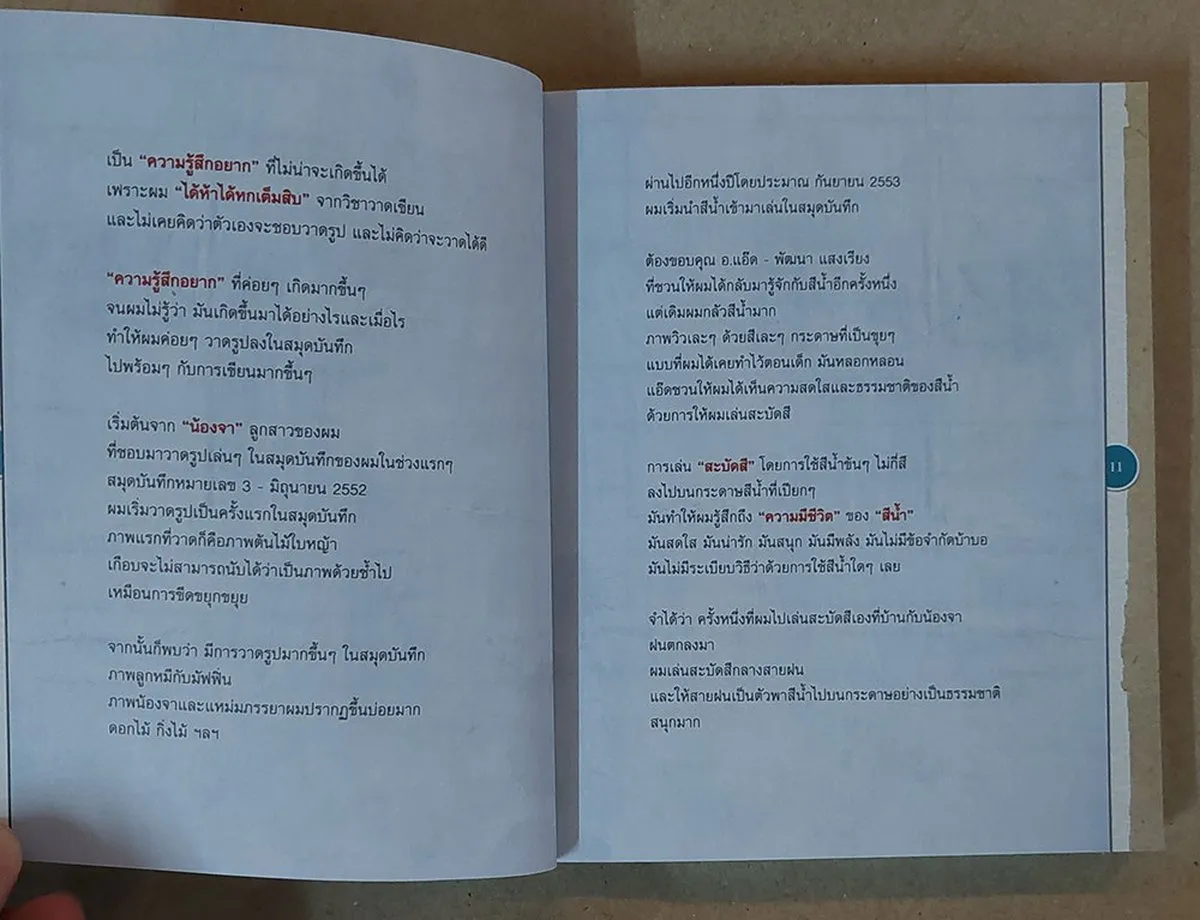 เป็น “ความรู้สึกอยาก” ที่ไม่น่าจะเกิดขึ้นได้
เพราะผม “ได้ห้าได้หกเต็มสิบ” จากวิชาวาดเขียน
และไม่เคยคิดว่าตัวเองจะชอบวาดรูป และไม่คิดว่าจะวาดได้ดี
“ความรู้สึกอยาก” ที่ค่อยๆ เกิดมากขึ้นๆ
จนผมไม่รู้ว่า มันเกิดขึ้นมาได้อย่างไรและเมื่อไร
ทำให้ผมค่อยๆ วาดรูปลงในสมุดบันทึก
ไปพร้อมๆ กับการเขียนมากขึ้นๆ
เริ่มต้นจาก “น้องจา” ลูกสาวของผม
ที่ชอบมาวาดรูปเล่นๆ ในสมุดบันทึกของผมในช่วงแรกๆ
สมุดบันทึกหมายเลข 3 - มิถุนายน 2552
ผมเริ่มวาดรูปเป็นครั้งแรกในสมุดบันทึก
ภาพแรกที่วาดก็คือภาพต้นไม้ใบหญ้า
เกือบจะไม่สามารถนับได้ว่าเป็นภาพด้วยซ้ำไป
เหมือนการขีดขยุกขยุย
จากนั้นก็พบว่า มีการวาดรูปมากขึ้นๆ ในสมุดบันทึก
ภาพลูกหมีกับมัฟฟิ่น
ภาพน้องจาและแหม่มภรรยาผมปรากฏขึ้นบ่อยมาก
ดอกไม้ กิ่งไม้ ฯลฯ
ผ่านไปอีกหนึ่งปีโดยประมาณ กันยายน 2553
ผมเริ่มนำสีน้ำเข้ามาเล่นในสมุดบันทึก
ต้องขอบคุณ อ.แอ๊ด - พัฒนา แสงเรียง
ที่ชวนให้ผมได้กลับมารู้จักกับสีน้ำอีกครั้งหนึ่ง
แต่เดิมผมกลัวสีน้ำมาก
ภาพวิวเละๆ ด้วยสีเละๆ กระดาษที่เป็นขุยๆ
แบบที่ผมได้เคยทำไว้ตอนเด็ก มันหลอกหลอน
แอ๊ดชวนให้ผมได้เห็นความสดใสและธรรมชาติของสีน้ำ
ด้วยการให้ผมเล่นสะบัดสี
การเล่น “สะบัดสี” โดยการใช้สีน้ำข้นๆ ไม่กี่สี
ลงไปบนกระดาษสีน้ำที่เปียกๆ
มันทำให้ผมรู้สึกถึง “ความมีชีวิต” ของ “สีน้ำ”
มันสดใส มันน่ารัก มันสนุก มันมีพลัง มันไม่มีข้อจำกัดบ้าบอ
มันไม่มีระเบียบวิธีว่าด้วยการใช้สีน้ำใดๆ เลย
จำได้ว่า ครั้งหนึ่งที่ผมไปเล่นสะบัดสีเองที่บ้านกับน้องจา
ฝนตกลงมา
ผมเล่นสะบัดสีกลางสายฝน
และให้สายฝนเป็นตัวพาสีน้ำไปบนกระดาษอย่างเป็นธรรมชาติ
สนุกมาก
11